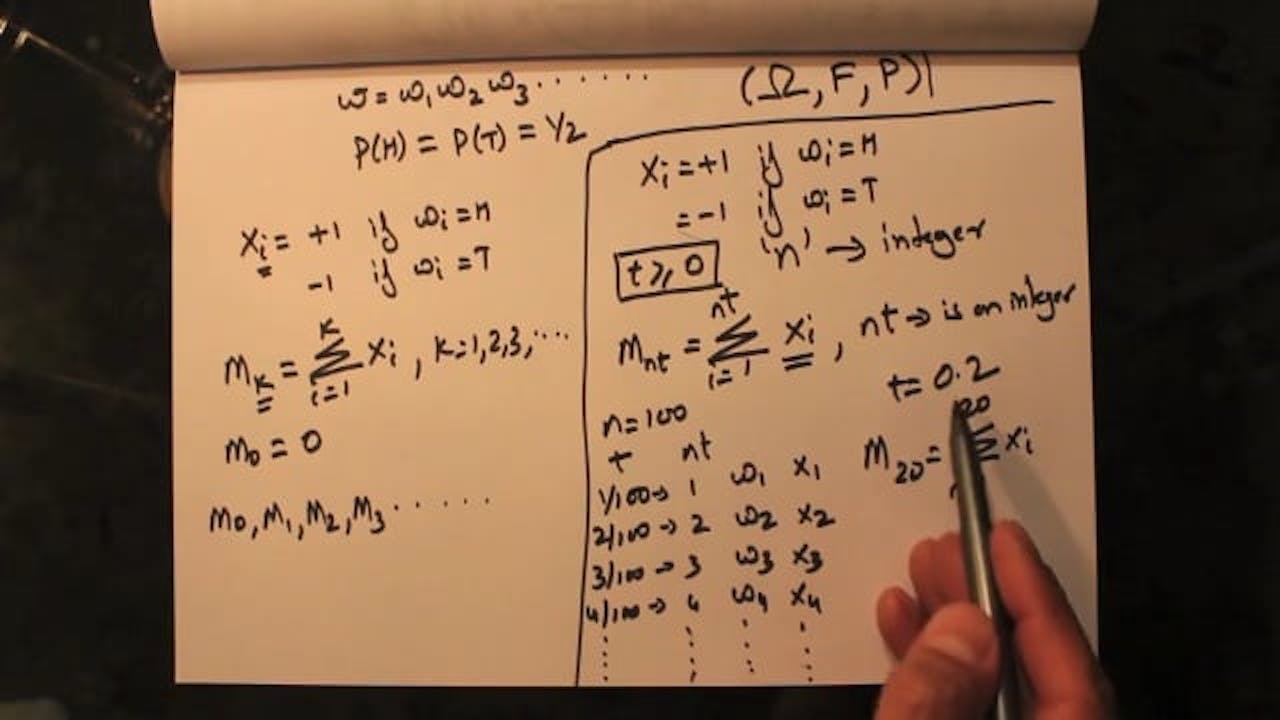 ω = ω₁ω₂ω₃.......
P(H) = P(T) = 1/2
Xᵢ = +1 if ωᵢ = H
-1 if ωᵢ = T
M_K = Σ_{i=1}^{K} Xᵢ , K=1,2,3,....
M₀ = 0
M₀, M₁, M₂, M₃......
(Ω, F, P)
Xᵢ = +1 if ωᵢ = H
= -1 if ωᵢ = T
t ≥ 0 'n' → integer
M_{nt} = Σ_{i=1}^{nt} Xᵢ , nt → is an integer
n = 100
t nt
1/100 → 1 ω₁ X₁
2/100 → 2 ω₂ X₂
3/100 → 3 ω₃ X₃
4/100 → 4 ω₄ X₄
t = 0.2
M₂₀ = Σ^{20} Xᵢ